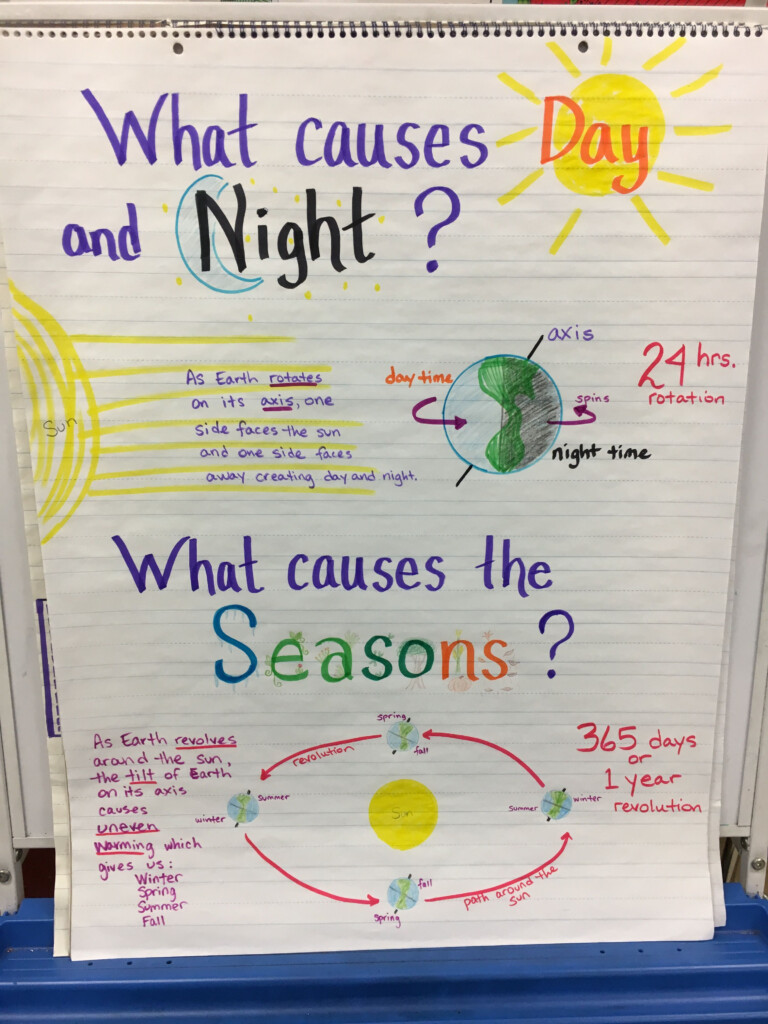 What causes Day
and Night ?
Sun
As Earth rotates
on its axis, one
side faces the sun
and one side faces
away creating day and night.
axis
day time
spins
night time
24 hrs.
rotation
What causes the
Seasons ?
As Earth revolves
around the sun,
the tilt of Earth
on its axis
causes
uneven
warming which
gives us:
Winter
Spring
Summer
Fall
spring
fall
revolution
summer
winter
Sun
summer
winter
fall
spring
path around the
sun
365 days
or
1 year
revolution